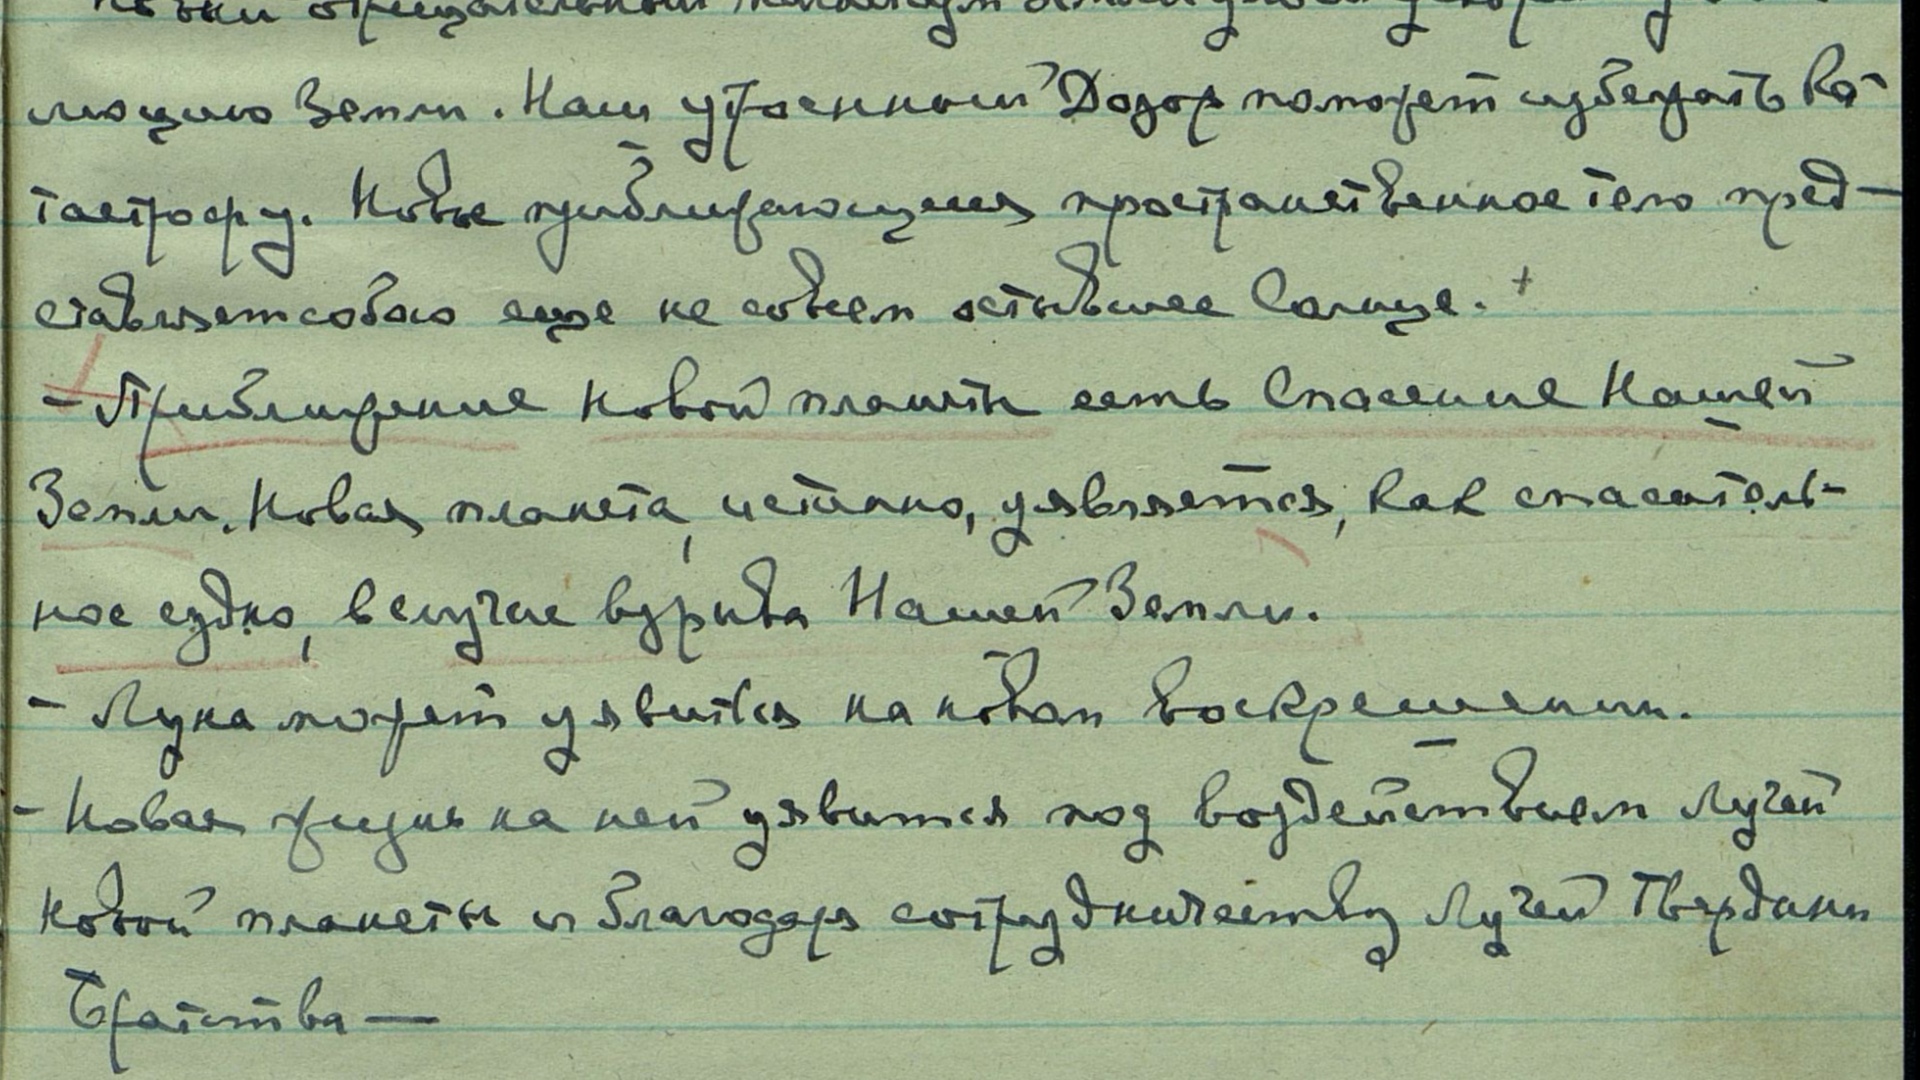 люцию Земли. Наш утроенный Дозор поможет избежать Ка-
тастрофу. Новое приближающееся пространственное тело пред-
ставляет собою еще не совсем остывшее Солнце. +
- Приближение новой планеты есть Спасение Нашей
Земли. Новая планета, истинно, уявляется, как спаситель-
ное судно, в случае взрыва Нашей Земли.
- Луна может уявиться на новом воскрешении.
- Новая жизнь на ней уявится под воздействием Лучей
новой планеты и благодаря сотрудничеству Лучей Твердыни
Братства —